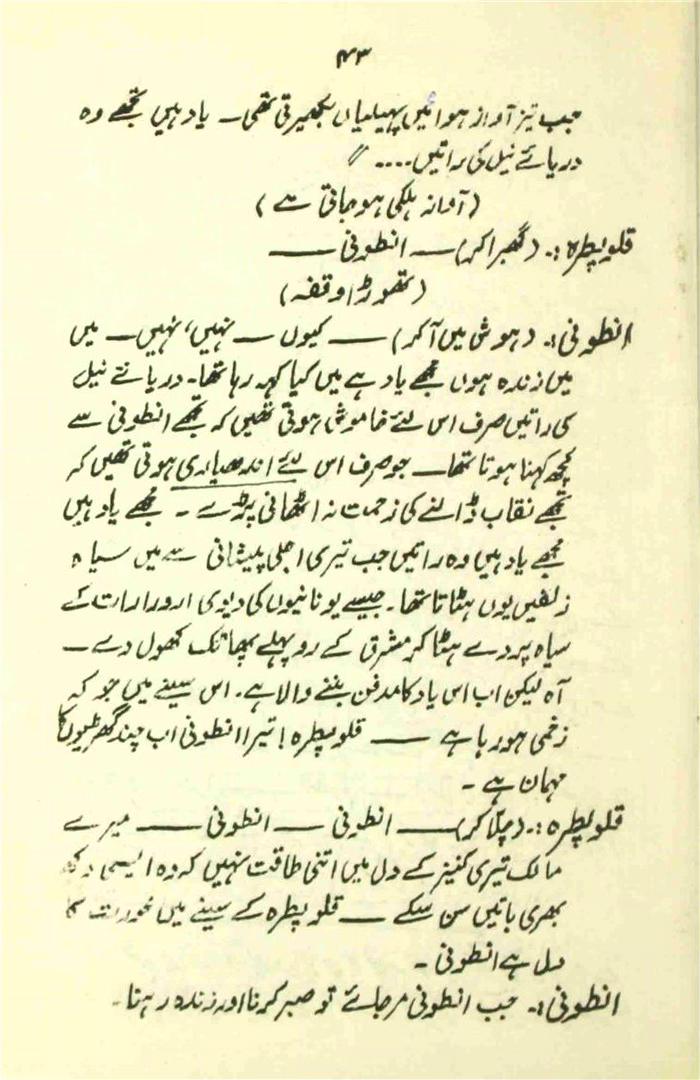 ۴۳
جب تیز آواز ہوائیں پہیلیاں بکھیرتی تھی۔ یاد ہیں تجھے وہ
دریائے نیل کی راتیں.... ‖
(آواز ہلکی ہو جاتی ہے)
قلوپطرہ:۔ (گھبرا کر) —— انطونی ——
(تھوڑا وقفہ)
انطونی:۔ (ہوش میں آ کر) —— کیوں —— نہیں، نہیں— میں
میں زندہ ہوں مجھے یاد ہے میں کیا کہہ رہا تھا۔ دریائے نیل
کی راتیں صرف اس لئے خاموش ہوتی تھیں کہ تجھے انطونی سے
کچھ کہنا ہوتا تھا— جو صرف اس لئے اندھیاری ہوتی تھیں کہ
تجھے نقاب ڈالنے کی زحمت نہ اٹھانی پڑے۔ مجھے یاد ہیں
مجھے یاد ہیں وہ راتیں جب تیری اجلی پیشانی سے میں سیاہ
زلفیں یوں ہٹاتا تھا۔ جیسے یونانیوں کی دیوی ارورا رات کے
سیاہ پردے ہٹا کر مشرق کے روپہلے پھاٹک کھول دے—
آہ لیکن اب اس یاد کا مدفن بننے والا ہے۔ اس سینے میں جو کہ
زخمی ہو رہا ہے —— قلوپطرہ! تیرا انطونی اب چند گھڑیوں کا
مہمان ہے۔
قلوپطرہ:۔ (چلا کر) —— انطونی —— انطونی —— میرے
مالک تیری کنیز کے دل میں اتنی طاقت نہیں کہ وہ ایسی دکھ
بھری باتیں سن سکے —— قلوپطرہ کے سینے میں عورت کا
دل ہے انطونی۔
انطونی:۔ جب انطونی مر جائے تو صبر کرنا اور زندہ رہنا۔